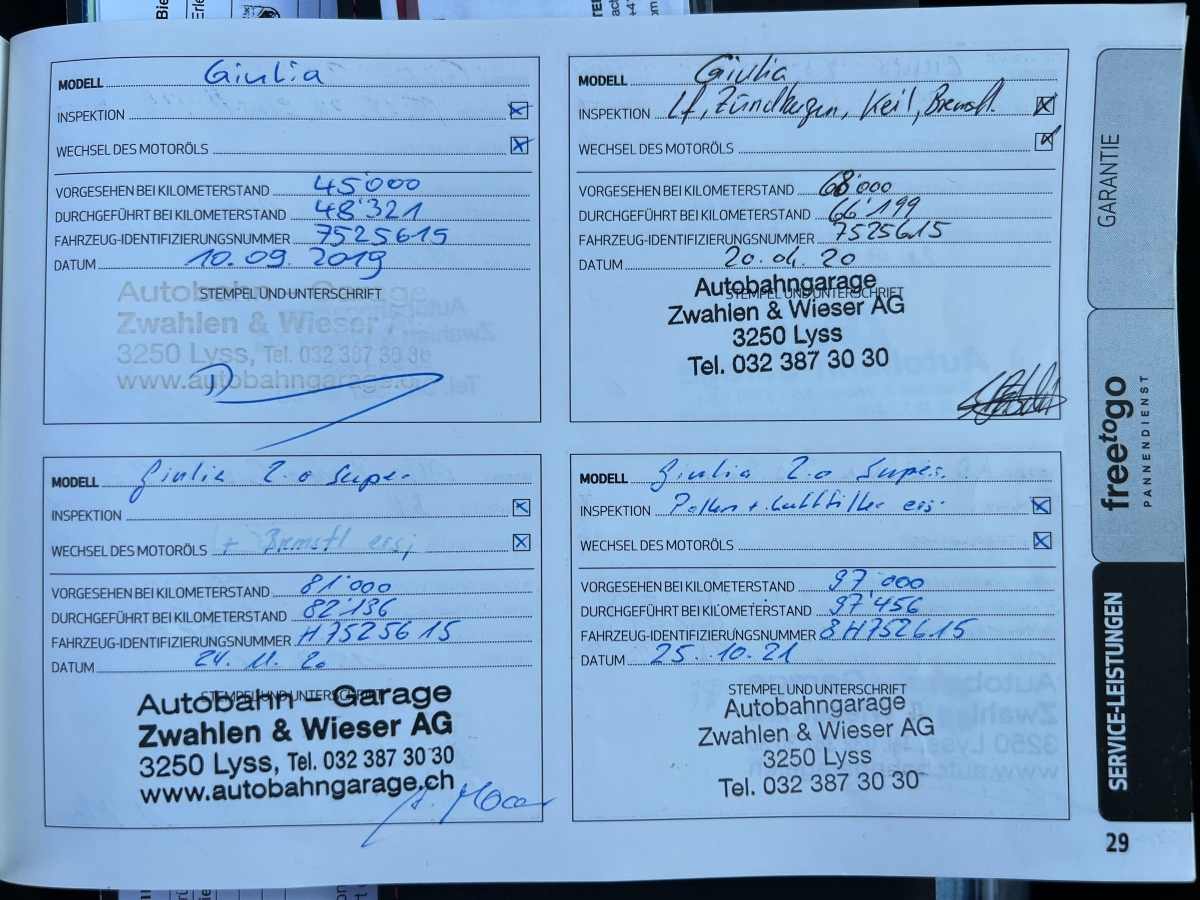 MODELL Giulia
INSPEKTION
WECHSEL DES MOTORÖLS
VORGESEHEN BEI KILOMETERSTAND 45'000
DURCHGEFÜHRT BEI KILOMETERSTAND 48'321
FAHRZEUG-IDENTIFIZIERUNGSNUMMER 7525615
DATUM 10.09. 2019
STEMPEL UND UNTERSCHRIFT
Autobahn - Garage
Zwahlen & Wieser AG
3250 Lyss, Tel. 032 387 30 30
www.autobahngarage.ch
MODELL Giulia
INSPEKTION Lf, Zündkerzen, Keil, Bremsfl.
WECHSEL DES MOTORÖLS
VORGESEHEN BEI KILOMETERSTAND 68'000
DURCHGEFÜHRT BEI KILOMETERSTAND 66'199
FAHRZEUG-IDENTIFIZIERUNGSNUMMER 7525615
DATUM 20.04.20
STEMPEL UND UNTERSCHRIFT
Autobahngarage
Zwahlen & Wieser AG
3250 Lyss
Tel. 032 387 30 30
MODELL Giulia 2.0 Super
INSPEKTION
WECHSEL DES MOTORÖLS + Bremsfl ers;
VORGESEHEN BEI KILOMETERSTAND 81'000
DURCHGEFÜHRT BEI KILOMETERSTAND 82'136
FAHRZEUG-IDENTIFIZIERUNGSNUMMER H7525615
DATUM 24. 11. 20
STEMPEL UND UNTERSCHRIFT
Autobahn - Garage
Zwahlen & Wieser AG
3250 Lyss, Tel. 032 387 30 30
www.autobahngarage.ch
MODELL Giulia 2.0 Super.
INSPEKTION Pollen + Luftfilter ers.
WECHSEL DES MOTORÖLS
VORGESEHEN BEI KILOMETERSTAND 97'000
DURCHGEFÜHRT BEI KILOMETERSTAND 97'456
FAHRZEUG-IDENTIFIZIERUNGSNUMMER 8H752615
DATUM 25.10.21
STEMPEL UND UNTERSCHRIFT
Autobahngarage
Zwahlen & Wieser AG
3250 Lyss
Tel. 032 387 30 30
GARANTIE
freetogo
PANNENDIENST
SERVICE-LEISTUNGEN
29